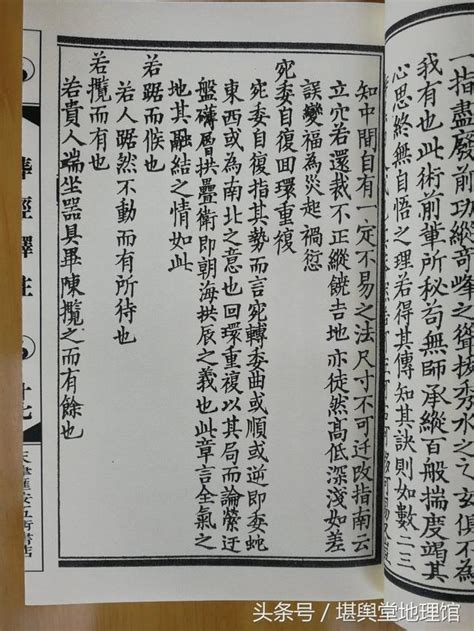 一指盡廢前功縱奇峰之拔秀水之玄俱不為
我有也此術前輩所秘苟無師承縱百般揣度竭其
心思終無自悟之理若得其傳知其訣則如數二三
知中間自有一定不易之法尺寸不可迁改指南云
立穴若還裁不正縱饒吉地亦徒然高低深淺如差
誤變福為災起禍愆
宛委自復回環重復
宛委自復指其勢而言宛轉委曲或順或逆即委蛇
東西或為南北之意也回環重復以其局而論縈迂
盤礴層拱疊衛即朝海拱辰之義也此章言全氣之
地其融結之情如此
若踞而候也
若人踞然不動而有所待也
若攬而有也
若貴人端坐器具畢陳攬之而有餘也
葬經譯註
十七
头条号/堪舆堂地理馆